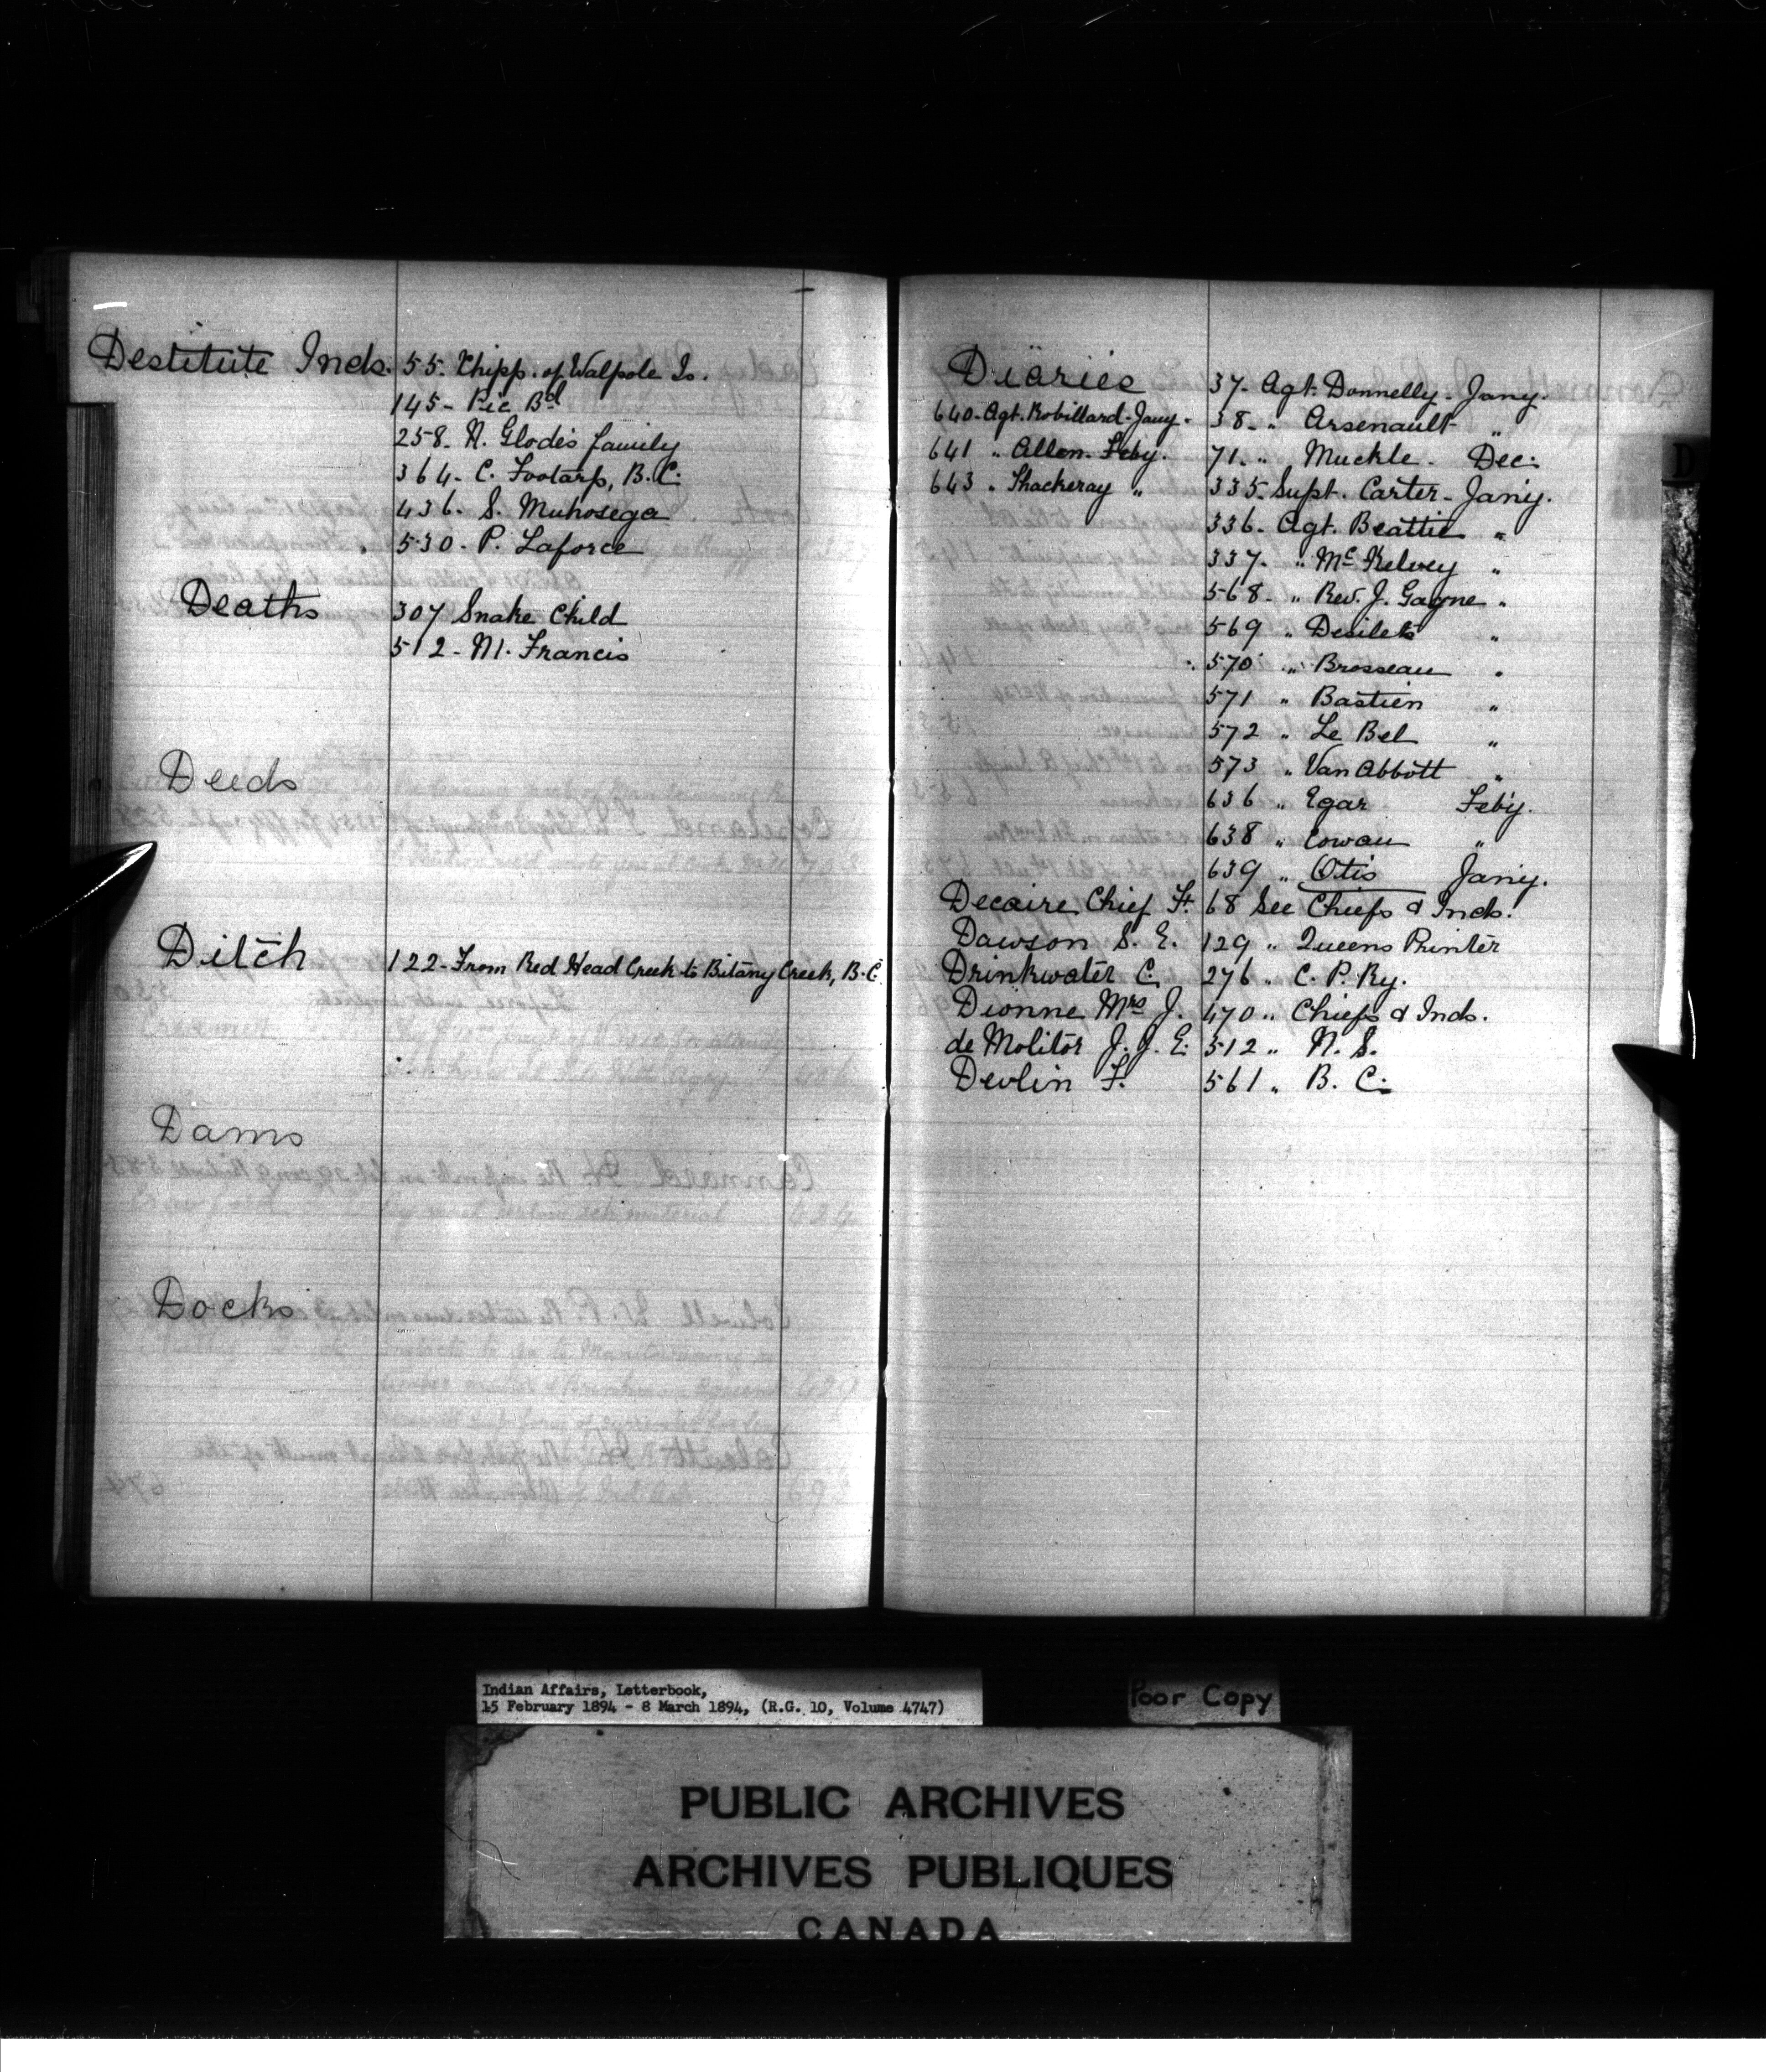 Destitute Inds. 55. Chipp. of Walpole Is.
145- Pic Bd
258- N. Glode's family
364- C. Footarp, B.C.
436- S. Muhosega
530- P. Laforce
Deaths 307 Snake Child
512- M. Francis
Deeds
Ditch 122- From Red Head Creek to Bitany Creek, B.C.
Dams
Docks
Diaries 37- Agt. Donnelly- Jany.
640- Agt. Robillard- Jany. 38- " Arsenault "
641 " Allen- Feby. 71- " Muckle- Dec.
643 " Thackeray " 335- Supt. Carter- Jan'y.
336- Agt. Beattie "
337- " McKelvey "
568- " Rev. J. Gagne "
569 " Desilets "
570 " Brosseau "
571 " Bastien "
572 " Le Bel "
573 " Van Abbott "
636 " Egar Feb'y.
638 " Cowan "
639 " Otis Jan'y.
Decaire Chief F. 68 See Chiefs & Inds.
Dawson S. E. 129 " Queens Printer
Drinkwater C. 276 " C. P. Ry.
Dionne Mrs J. 470 " Chiefs & Inds.
de Molitor J. J. E. 512 " N. S.
Devlin F. 561 " B. C.
D
Indian Affairs, Letterbook,
15 February 1894 - 8 March 1894, (R.G. 10, Volume 4747)
Poor Copy
PUBLIC ARCHIVES
ARCHIVES PUBLIQUES
CANADA